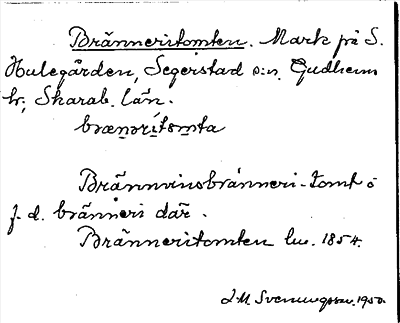 Bränneritomten. Mark på S.
Hulegården, Segerstad s:n. Gudhems
hr, Skarab. län.
brænərítomta
Brännvinsbränneri-tomt o
f. d. bränneri där.
Bränneritomten lm. 1854.
J. M. Svenungsson. 1950.